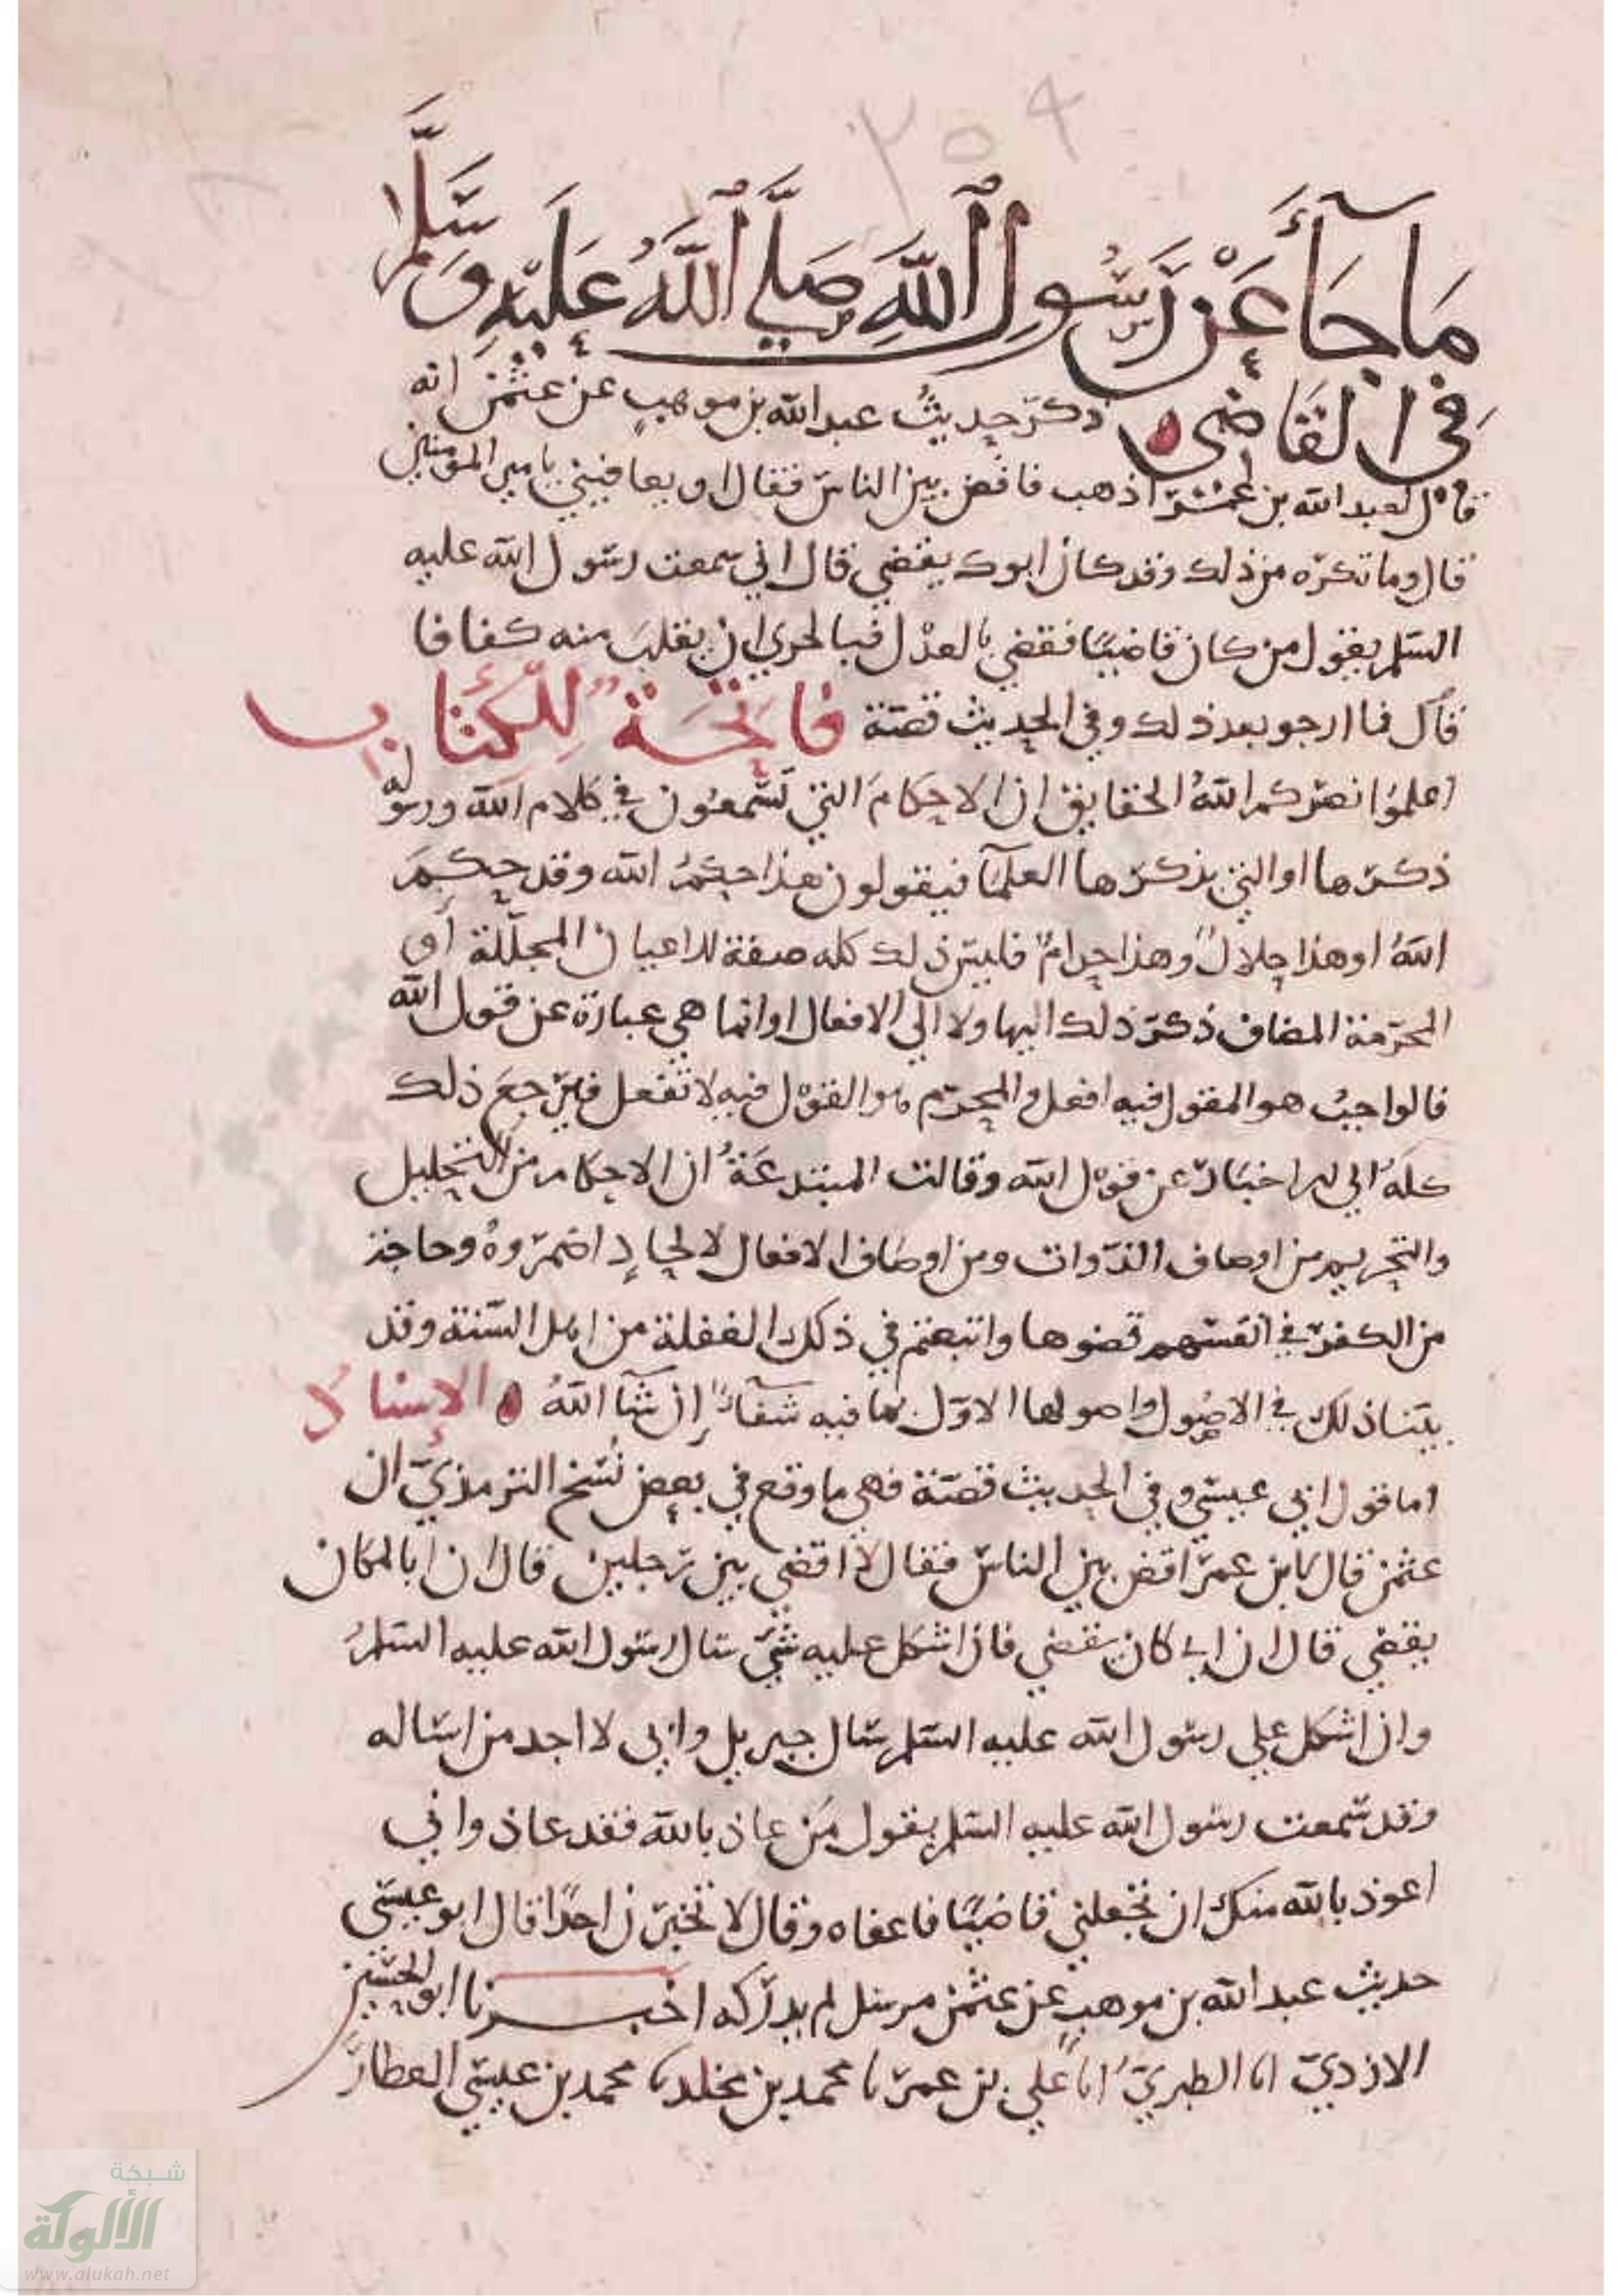 ٢٥٩
مَا جَآءَ عَنْ رَسُولِ اللَّهِ صَلَّى اللَّهُ عَلَيْهِ وَسَلَّمَ
فِي القَاضِي ذكر حديث عبد الله بن موهب عن عثمن انه
قال لعبد الله بن عمر اذهب فاقض بين الناس فقال او يعافيني يامير المومنين
قال وما تكره من ذلك وقد كان ابوك يقضي قال اني سمعت رسول الله عليه
السلم يقول من كان قاضيًا فقضى بالعدل فبالحري ان ينقلب منه كفافا
قال فما ارجو بعد ذلك وفي الحديث قصة فاتحة للكتاب
اعلموا نصركم الله الحقايق ان الاحكام التي تسمعون في كلام الله ورسوله
ذكرها او التي يذكرها العلمآ فيقولون هذا حكم الله وقد حكم
الله او هذا حلال وهذا حرام فليس ذلك كله صفة للاعيان المحللة او
المحرمة المضاف ذكر ذلك اليها ولا الى الافعال وانما هي عبارة عن قول الله
فالواجب هو المقول فيه افعل والمحرم هو القول فيه لا تفعل فيرجع ذلك
كله الى الاخبار عن قول الله وقالت المبتدعة ان الاحكام من التحليل
والتحريم من اوصاف الذوات ومن اوصاف الافعال لالحاد اضمروه وحاجة
من الكفر في انفسهم قضوها واتبعتهم في ذلك الغفلة من اهل السنة وقد
بيّنا ذلك في الاصول واصولها الاول بما فيه شفآء ان شآ الله الاسناد
اما قول ابي عيسى وفي الحديث قصة فهي ما وقع في بعض نسخ الترمذي ان
عثمن قال لابن عمر اقض بين الناس فقال لا اقضي بين رجلين قال ان اباك كان
يقضي قال ان ابي كان يقضي فان اشكل عليه شي سال رسول الله عليه السلم
وان اشكل على رسول الله عليه السلم سال جبريل واني لا اجد من اساله
وقد سمعت رسول الله عليه السلم يقول من عاذ بالله فقد عاذ واني
اعوذ بالله منك ان تجعلني قاضيًا فاعفاه وقال لا تخبرن احدًا قال ابو عيسى
حديث عبد الله بن موهب عن عثمن مرسل لم يدركه اخبرنا ابو الحسين
الازدي انا الطبري انا علي بن عمر نا محمد بن مخلد نا محمد بن عيسى العطار
شبكة
الألوكة
www.alukah.net